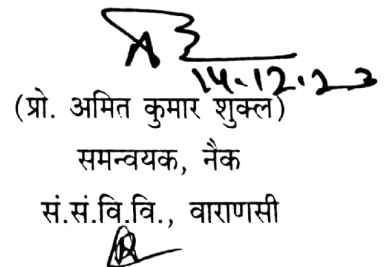 14.12.23
(प्रो. अमित कुमार शुक्ल)
समन्वयक, नैक
सं.सं.वि.वि., वाराणसी